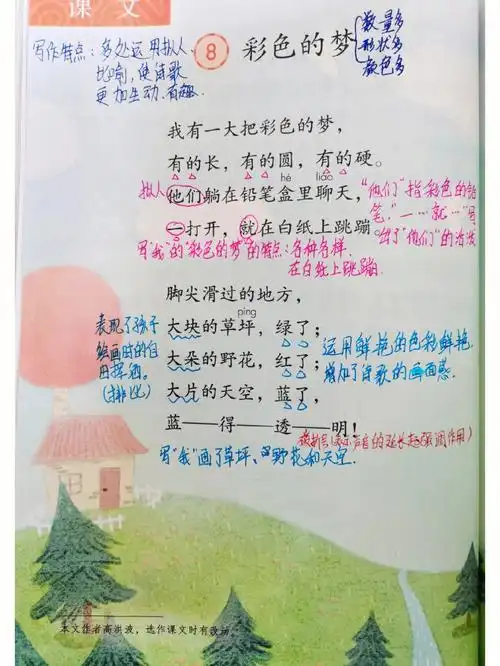 课文
写作特点：多处运用拟人、
比喻，使诗歌
更加生动、有趣.
8 彩色的梦
数量多
形状多
颜色多
我有一大把彩色的梦，
有的长，有的圆，有的硬。
hé liáo
拟人 他们躺在铅笔盒里聊天，
"他们"指彩色的铅
笔，"一…就…"写
出了"他们"的活泼
一打开，就在白纸上跳蹦。
写"我"的"彩色的梦"的特点：各种各样.
在白纸上跳蹦
脚尖滑过的地方，
píng
大块的草坪，绿了；
大朵的野花，红了；
大片的天空，蓝了，
蓝——得——透——明！
表现了孩子
绘画时的自
由挥洒。
(排比)
运用鲜艳的色彩鲜艳.
增加了诗歌的画面感.
破折号(表示声音的延长起强调作用)
写"我"画了草坪、野花和天空.
本文作者高洪波，选作课文时有改动。